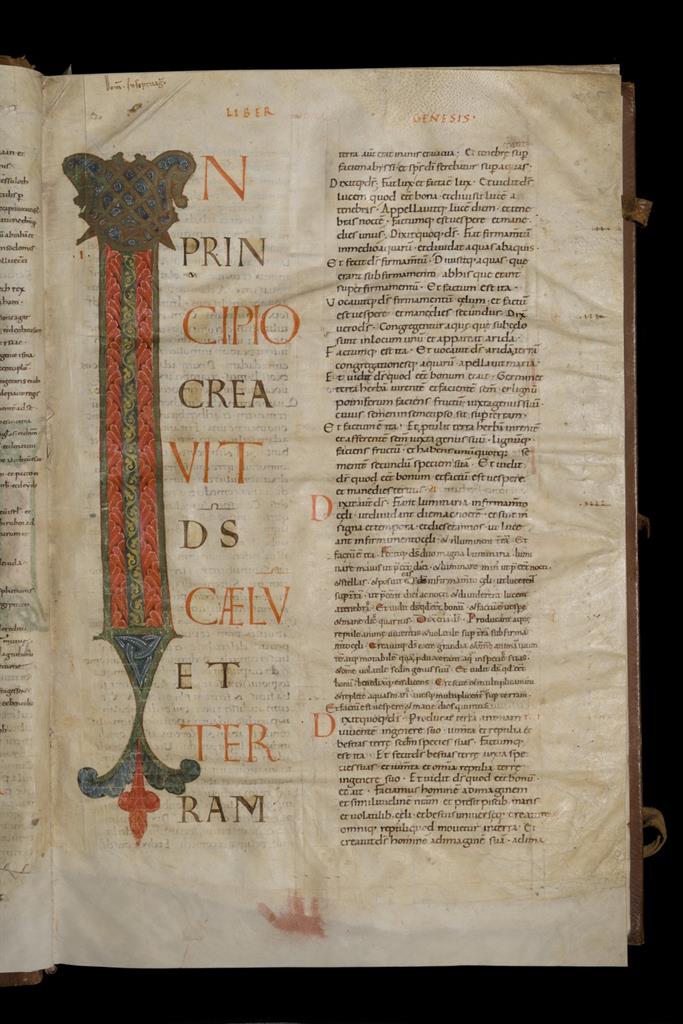 LIBER GENESIS
IN
PRIN
CIPIO
CREA
VIT
DS
CÆLV
ET
TER
RAM
terra aut erat inanis et vacua · Et tenebre sup
faciem abyssi et sps di ferebatur sup aquas ·
Dixitq; ds · Fiat lux et facta e lux · Et vidit ds
lucem quod eet bona et divisit luce a
tenebris · Appellavitq; luce diem et tene
bras nocte · Factumq; est vespere et mane
dies unus · Dixit quoq; ds · Fiat firmamtu
in medio aquaru et dividat aquas ab aquis ·
Et fecit ds firmamtu · Divisitq; aquas que
erant sub firmamento ab his que erant
super firmamentu · Et factum est ita ·
Vocavitq; ds firmamentu celum et factu
est vespere et mane dies secundus · Dix
vero ds · Congregentur aque que sub celo
sunt in locum unu et appareat arida ·
Factumq; est ita · Et vocavit ds arida terra
congregationesq; aquaru appellavit maria ·
Et vidit ds quod eet bonum et ait · Germinet
terra herba virente et faciente sem et lignu
pomiferum faciens fructu iuxta genus suu
cuius semen in semetipso sit sup terram ·
Et factum e ita · Et protulit terra herba virente
et afferente sem iuxta genus suu · Lignuq;
faciens fructu et habens unuquodq; se
mente secundu speciem sua · Et vidit
ds quod eet bonum et factu est vespere
et mane dies tercius ·
Dixit aut ds · Fiant luminaria in firmamto
celi ut dividant diem ac nocte et sint in
signa et tempora et dies et annos ut luce
ant in firmamento celi & illuminent tra · Et
factu e ita · Fecitq; ds duo magna luminaria · lumi
nare maius ut peet diei & luminare min ut peet nocti
& stellas · & posuit eas ds in firmamto celi ut lucerent
sup tra · ut peent diei ac nocti & dividerent lucem
ac tenebras · Et vidit ds qd eet bonu & factu e vespe
& mane dies quartus · Dixit & ds · Producant aque
reptile anime viventis & volatile sup tra sub firma
mto celi · Creavitq; ds cete grandia & omne animam viven
te atq; motabile qua pduxerant aque in species suas ·
& omne volatile sedm genus suu · Et vidit ds qd eet
bonu benedixitq; eis dicens · Crescite & multiplicamini
& replete aquas maris avesq; multiplicent sup terram ·
Et factu e vespere & mane dies quintus
Dixit quoq; ds · Producat terra anima
vivente in genere suo · iumta et reptilia et
bestias terre sedm species suas · Factumq;
est ita · Et fecit ds bestias terre iuxta
species suas et iumta et omne reptile terre
in genere suo · Et vidit ds quod eet bonu
et ait · Faciamus homine ad imaginem
et similitudine nram et presit piscib; maris
et volatilib; celi et bestiis universeq; creature
omniq; reptili quod movetur in terra · Et
creavit ds homine ad imagine sua · ad ima